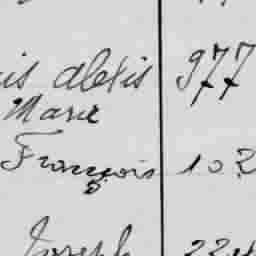 is Alexis 977
Marie
François 102
Joseph 22